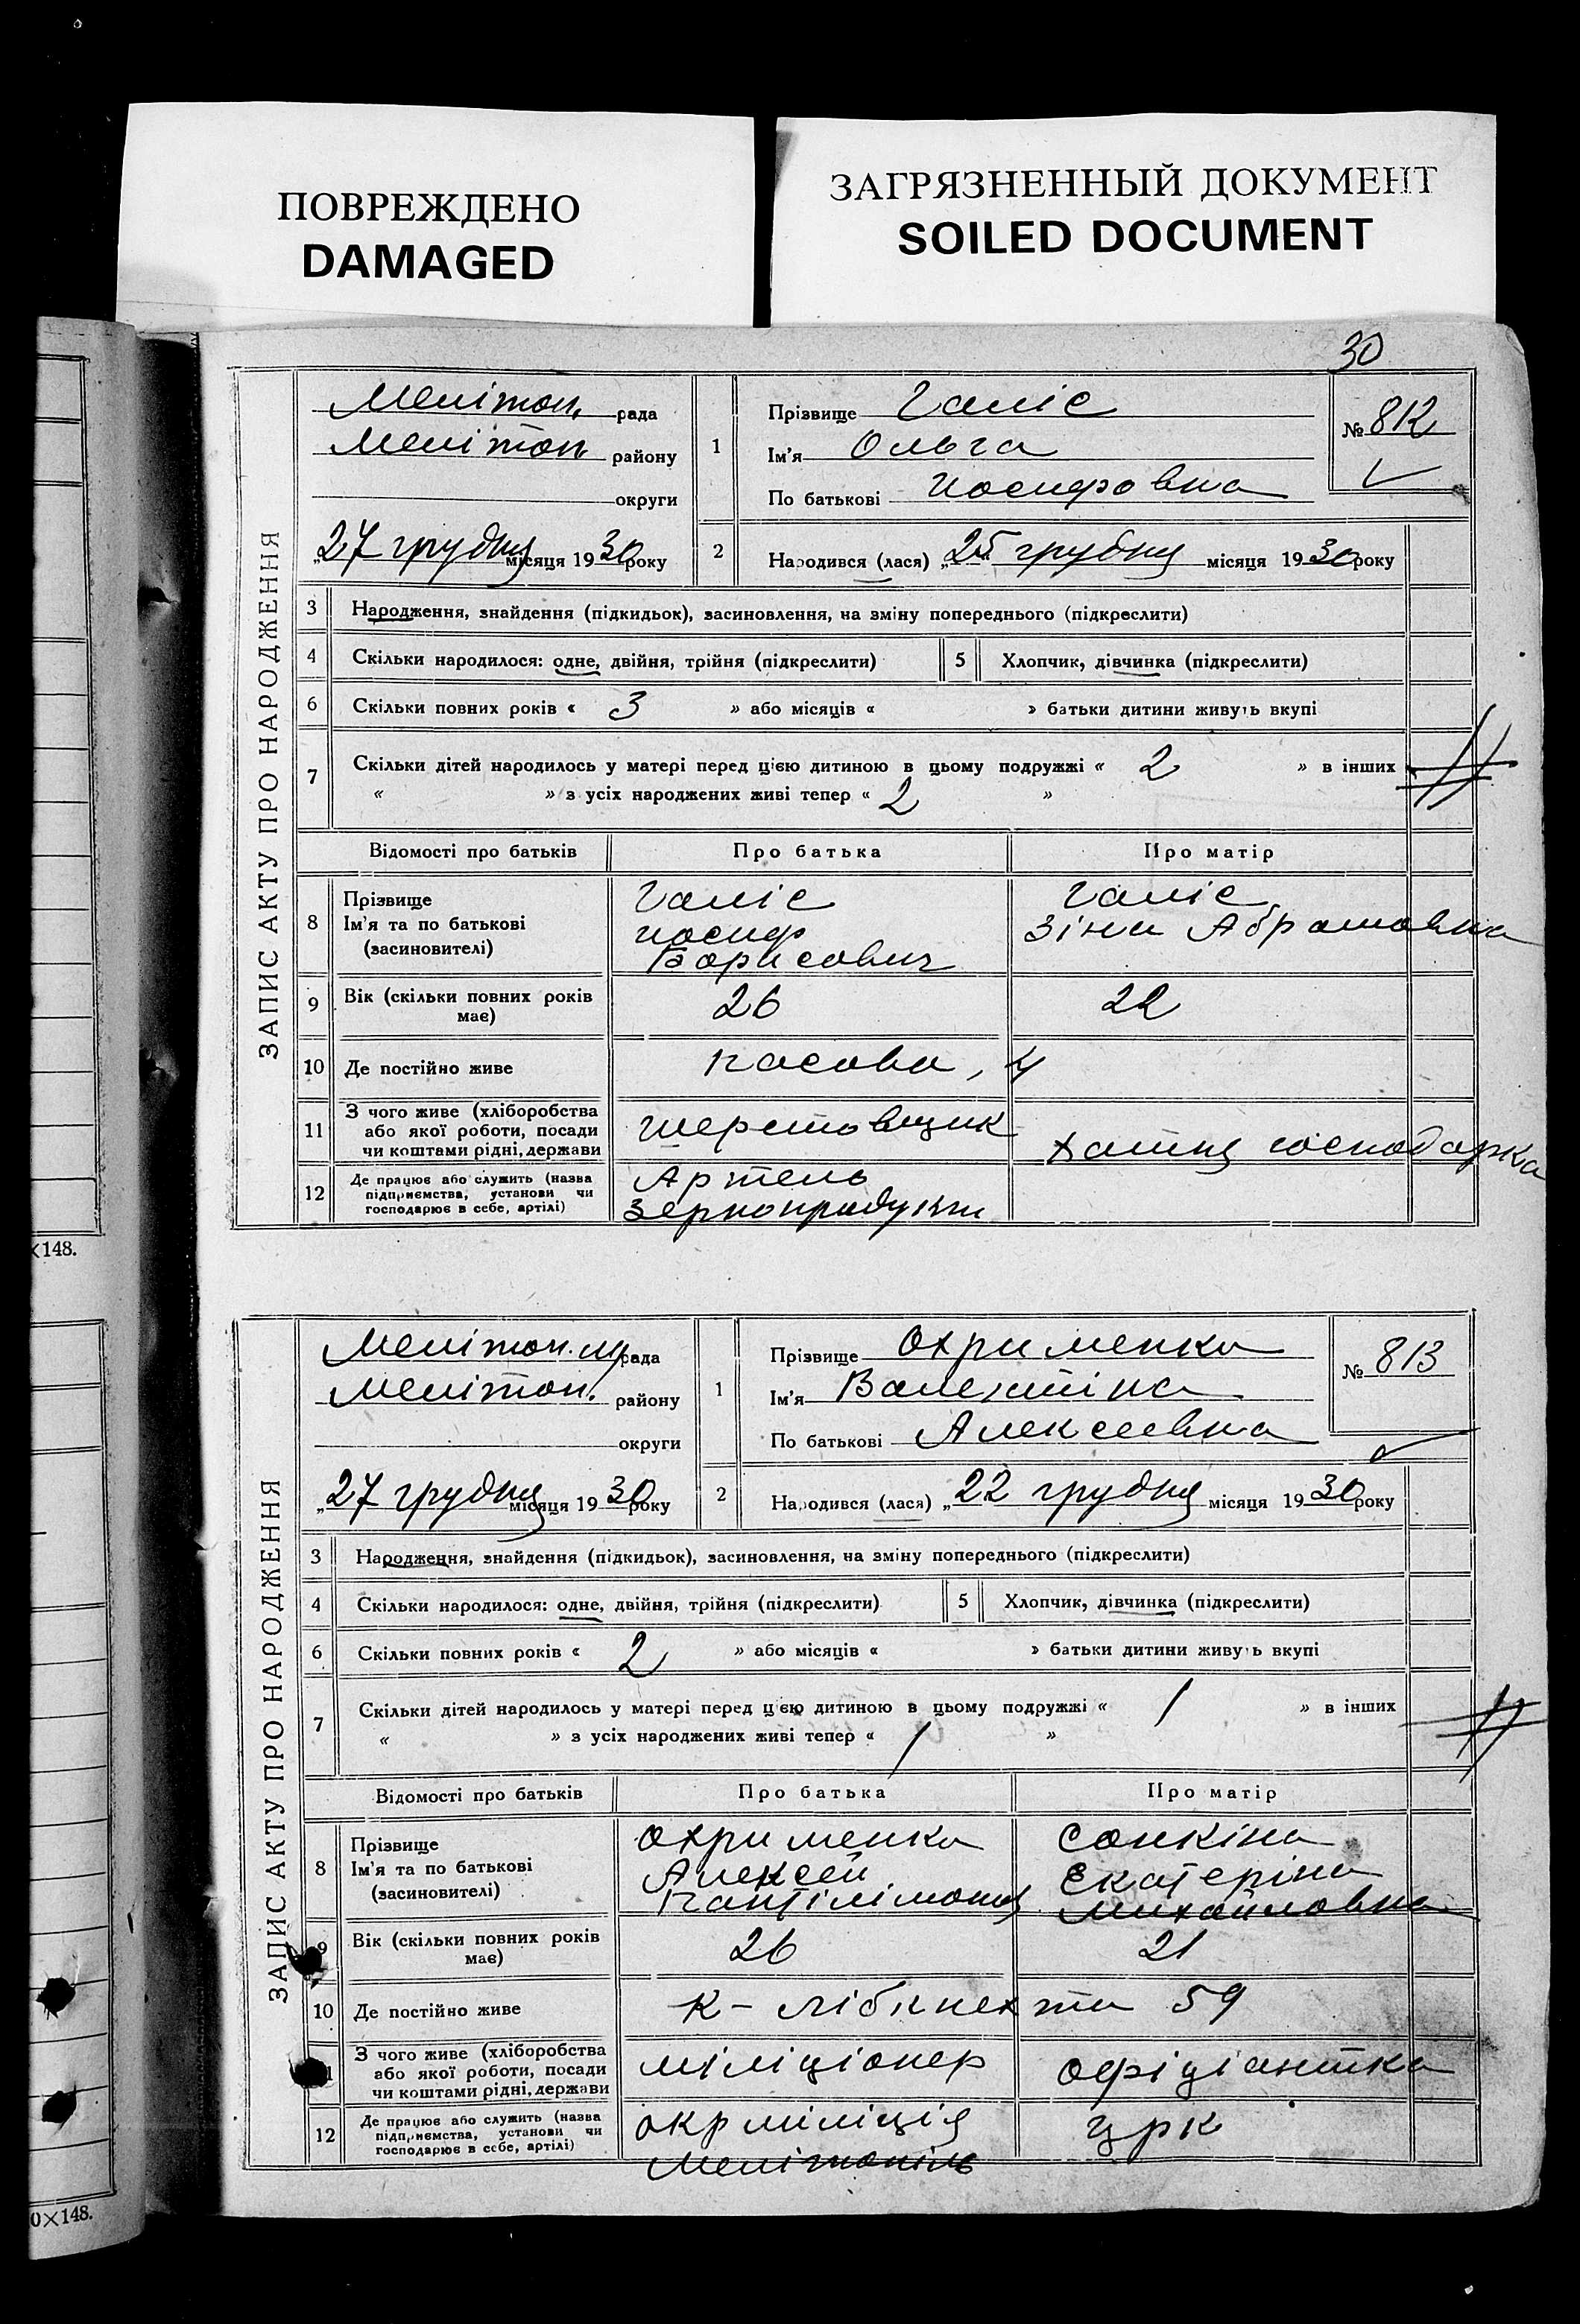 ПОВРЕЖДЕНО
DAMAGED
ЗАГРЯЗНЕННЫЙ ДОКУМЕНТ
SOILED DOCUMENT
30
ЗАПИС АКТУ ПРО НАРОДЖЕННЯ
Мелітоп. рада
Мелітоп району
округи
„27 грудня місяця 1930 року
1 Прізвище Галіс
Ім'я Ольга
По батькові Иосифовна
№ 812
2 Народився (лася) „25" грудня місяця 1930 року
3 Народження, знайдення (підкидьок), засиновлення, на зміну попереднього (підкреслити)
4 Скільки народилося: одне, двійня, трійня (підкреслити) 5 Хлопчик, дівчинка (підкреслити)
6 Скільки повних років « 3 » або місяців « » батьки дитини живуть вкупі
7 Скільки дітей народилось у матері перед цією дитиною в цьому подружжі « 2 » в інших
« » з усіх народжених живі тепер « 2 »
Відомості про батьків Про батька Про матір
8 Прізвище
Ім'я та по батькові
(засиновителі)
Галіс
иосиф
Борисович
Галіс
Зіна Абрамовна
9 Вік (скільки повних років має) 26 22
10 Де постійно живе 4
11 З чого живе (хліборобства
або якої роботи, посади
чи коштами рідні, держави
Хатня господарка
12 Де працює або служить (назва
підприємства, установи чи
господарює в себе, артілі)
Артель
Зернопродукти
×148.
ЗАПИС АКТУ ПРО НАРОДЖЕННЯ
Мелітоп. рада
Мелітоп. району
округи
„27 грудня місяця 1930 року
1 Прізвище Охрименко
Ім'я Валентіна
По батькові Алексеевна
№ 813
2 Народився (лася) „22 грудня місяця 1930 року
3 Народження, знайдення (підкидьок), засиновлення, на зміну попереднього (підкреслити)
4 Скільки народилося: одне, двійня, трійня (підкреслити) 5 Хлопчик, дівчинка (підкреслити)
6 Скільки повних років « 2 » або місяців « » батьки дитини живуть вкупі
7 Скільки дітей народилось у матері перед цією дитиною в цьому подружжі « 1 » в інших
« » з усіх народжених живі тепер « 1 »
Відомості про батьків Про батька Про матір
8 Прізвище
Ім'я та по батькові
(засиновителі)
Охрименко
Алексей
Сонкіна
Екатеріна
Михайловна
9 Вік (скільки повних років має) 26 21
10 Де постійно живе К-Лібкнехта 59
11 З чого живе (хліборобства
або якої роботи, посади
чи коштами рідні, держави
міліціонер
офіціантка
12 Де працює або служить (назва
підприємства, установи чи
господарює в себе, артілі)
окрміліція
Мелітопіль
црк
0×148.